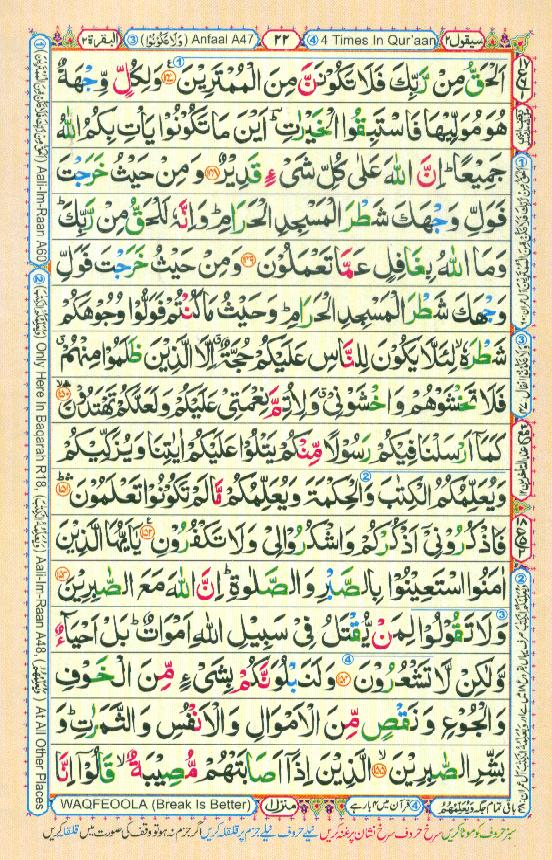 سيقول ٢
④ 4 Times In Qur'aan
٢٢
③ (وَلَا تَكُوْنُوْا) Anfaal A47
البقرة ٢
اَلْحَقُّ مِنْ رَّبِّكَ فَلَا تَكُوْنَنَّ مِنَ الْمُمْتَرِيْنَ ۝۱۴۷ وَلِكُلٍّ وِّجْهَةٌ
هُوَ مُوَلِّيْهَا فَاسْتَبِقُوا الْخَيْرٰتِ ؕ اَيْنَ مَا تَكُوْنُوْا يَاْتِ بِكُمُ اللّٰهُ
جَمِيْعًا ؕ اِنَّ اللّٰهَ عَلٰى كُلِّ شَىْءٍ قَدِيْرٌ ۝۱۴۸ وَمِنْ حَيْثُ خَرَجْتَ
فَوَلِّ وَجْهَكَ شَطْرَ الْمَسْجِدِ الْحَرَامِ ؕ وَاِنَّهٗ لَلْحَقُّ مِنْ رَّبِّكَ ؕ
وَمَا اللّٰهُ بِغَافِلٍ عَمَّا تَعْمَلُوْنَ ۝۱۴۹ وَمِنْ حَيْثُ خَرَجْتَ فَوَلِّ
وَجْهَكَ شَطْرَ الْمَسْجِدِ الْحَرَامِ ؕ وَحَيْثُ مَا كُنْتُمْ فَوَلُّوْا وُجُوْهَكُمْ
شَطْرَهٗ ۙ لِئَلَّا يَكُوْنَ لِلنَّاسِ عَلَيْكُمْ حُجَّةٌ ۙ اِلَّا الَّذِيْنَ ظَلَمُوْا مِنْهُمْ ۙ
فَلَا تَخْشَوْهُمْ وَاخْشَوْنِىْ ۙ وَلِاُتِمَّ نِعْمَتِىْ عَلَيْكُمْ وَلَعَلَّكُمْ تَهْتَدُوْنَ ۝۱۵۰
كَمَآ اَرْسَلْنَا فِيْكُمْ رَسُوْلًا مِّنْكُمْ يَتْلُوْا عَلَيْكُمْ اٰيٰتِنَا وَيُزَكِّيْكُمْ
وَيُعَلِّمُكُمُ الْكِتٰبَ وَالْحِكْمَةَ وَيُعَلِّمُكُمْ مَّا لَمْ تَكُوْنُوْا تَعْلَمُوْنَ ۝۱۵۱
فَاذْكُرُوْنِىْٓ اَذْكُرْكُمْ وَاشْكُرُوْا لِىْ وَلَا تَكْفُرُوْنِ ۝۱۵۲ يٰٓاَيُّهَا الَّذِيْنَ
اٰمَنُوا اسْتَعِيْنُوْا بِالصَّبْرِ وَالصَّلٰوةِ ؕ اِنَّ اللّٰهَ مَعَ الصّٰبِرِيْنَ ۝۱۵۳
وَلَا تَقُوْلُوْا لِمَنْ يُّقْتَلُ فِىْ سَبِيْلِ اللّٰهِ اَمْوَاتٌ ؕ بَلْ اَحْيَآءٌ
وَّلٰكِنْ لَّا تَشْعُرُوْنَ ۝۱۵۴ وَلَنَبْلُوَنَّكُمْ بِشَىْءٍ مِّنَ الْخَوْفِ
وَالْجُوْعِ وَنَقْصٍ مِّنَ الْاَمْوَالِ وَالْاَنْفُسِ وَالثَّمَرٰتِ ؕ وَ
بَشِّرِ الصّٰبِرِيْنَ ۝۱۵۵ الَّذِيْنَ اِذَآ اَصَابَتْهُمْ مُّصِيْبَةٌ ۙ قَالُوْٓا اِنَّا
① Aali-Im-Raan A60
② (وَيُعَلِّمُكُمُ الْكِتٰبَ) Only Here In Baqarah R18, (وَيُعَلِّمُهُ الْكِتٰبَ) Aali-Im-Raan A48, (وَيُعَلِّمُهُمُ) At All Other Places
WAQFEOOLA (Break Is Better)
منزل ١
④ قرآن میں ۴ بار ہے
باقی تمام جگہ وَيُعَلِّمُهُمُ
سبز حروف کو موٹا کریں سرخ حروف سرخ نشان پر غنہ کریں نیلے حروف نیلے جزم پر قلقلہ کریں اگر جزم نہ ہو تو وقف کی صورت میں قلقلہ کریں